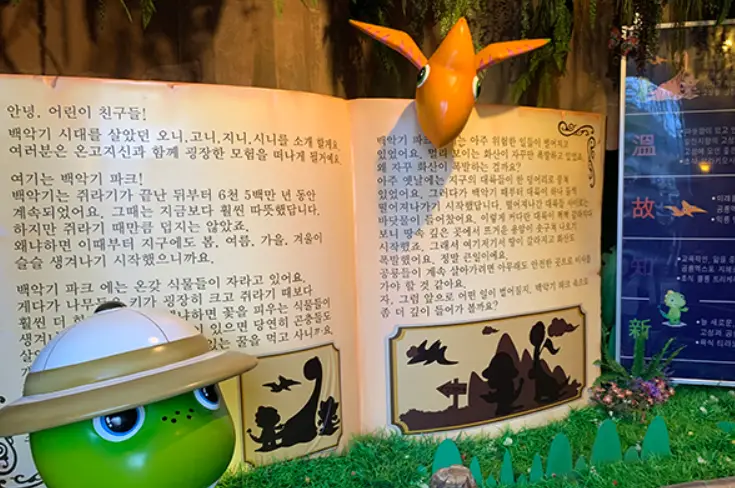 안녕. 어린이 친구들!
백악기 시대를 살았던 오니,고니,지니,시니를 소개 할게요.
여러분은 온고지신과 함께 굉장한 모험을 떠나게 될거예요.
여기는 백악기 파크!
백악기는 쥐라기가 끝난 뒤부터 6천 5백만 년 동안
계속되었어요. 그때는 지금보다 훨씬 따뜻했답니다.
하지만 쥐라기 때만큼 덥지는 않았죠.
왜냐하면 이때부터 지구에도 봄, 여름, 가을, 겨울이
슬슬 생겨나기 시작했으니까요.
백악기 파크 에는 온갖 식물들이 자라고 있어요.
게다가 나무들 키가 굉장히 크고 쥐라기 때보다
훨씬 더 냐하면 꽃을 피우는 식물들이
생겨 이 있으면 당연히 곤충들도
있는 꿀을 먹고 사니까요.
백악기 파크 는 아주 위험한 일들이 벌어지고
있었어요. 멀리 보이는 화산이 자꾸만 폭발하고 있었죠.
왜 자꾸 화산이 폭발하는 걸까요?
아주 옛날에는 지구의 대륙들이 한 덩어리로 뭉쳐
있었어요. 그러다가 백악기 때부터 대륙이 하나 둘씩
떨어져나가기 시작했답니다. 떨어져나간 대륙들 사이로는
바닷물이 들어찼어요. 이렇게 커다란 대륙이 쩍쩍 갈라지다
보니 땅속 깊은 곳에서 뜨거운 용암이 솟구쳐 나오기
시작했죠. 그래서 여기저기서 땅이 갈라지고 화산도
폭발했어요. 정말 큰일이에요.
공룡들이 계속 살아가려면 아무래도 안전한 곳으로 이사를
가야 할 것 같아요.
자, 그럼 앞으로 어떤 일이 벌어질지, 백악기 파크 속으로
좀 더 깊이 들어가 볼까요?
溫
故
知
新